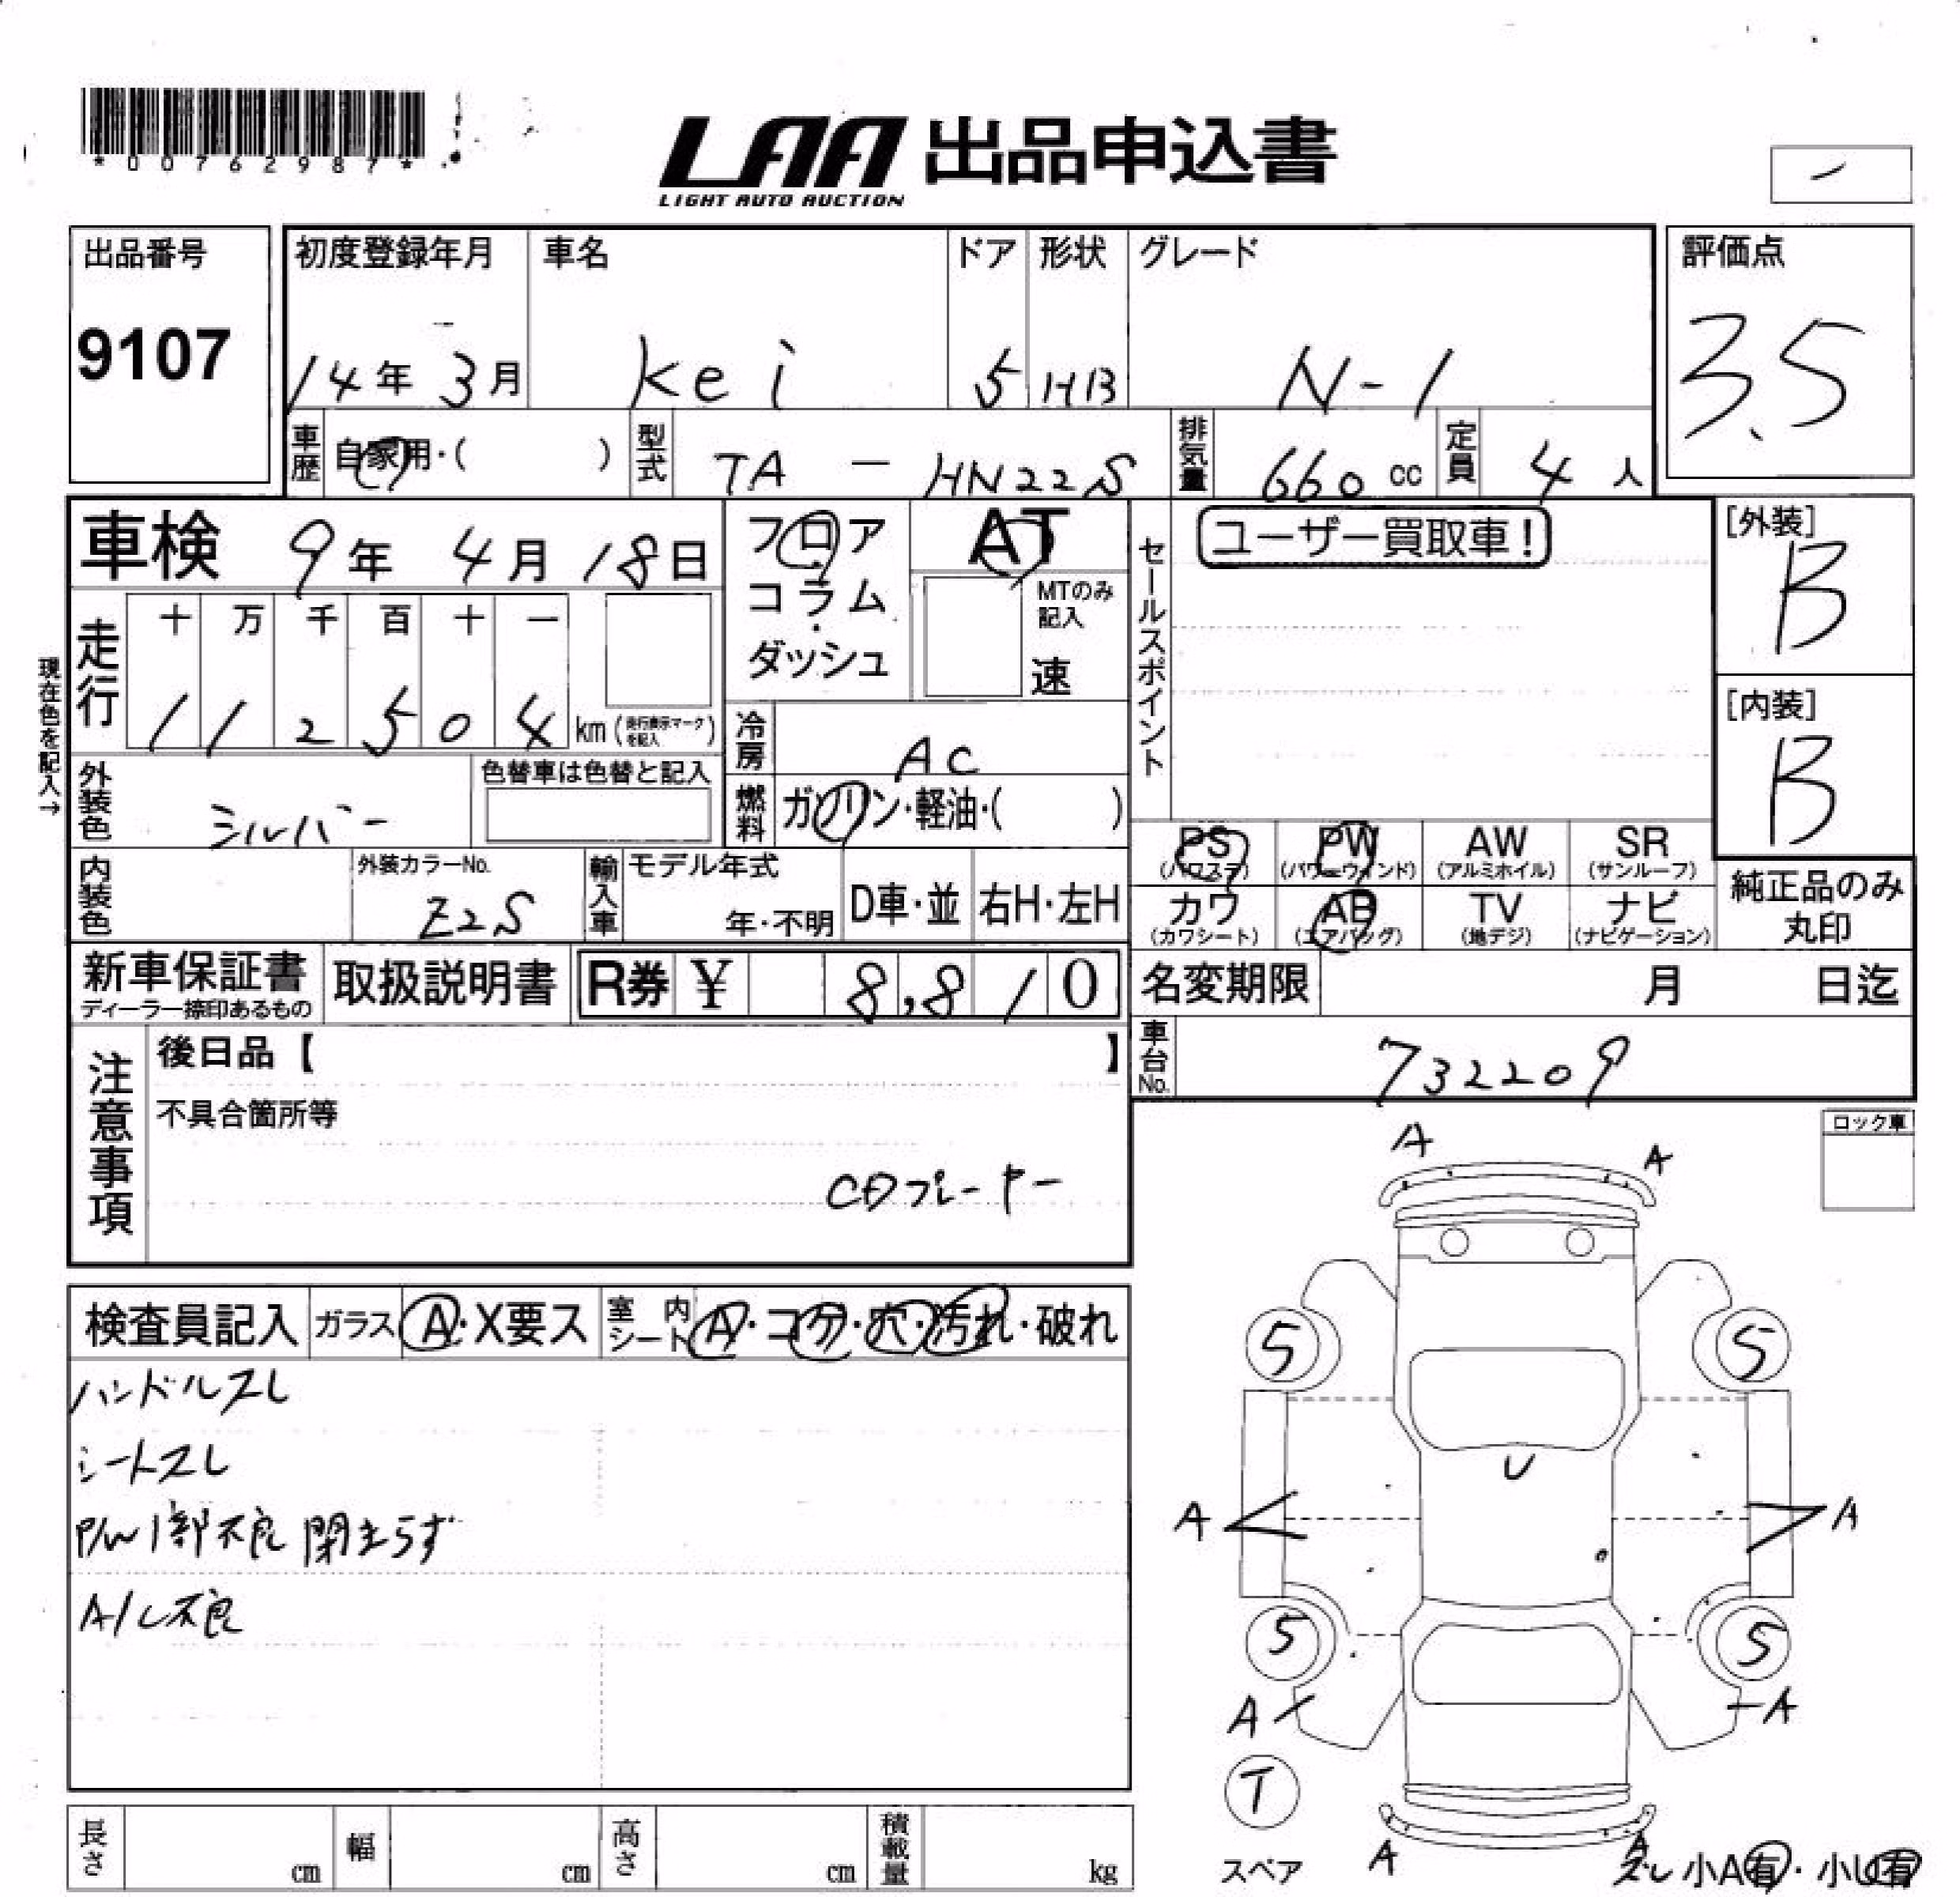 *00762987*
LAA 出品申込書
LIGHT AUTO AUCTION
出品番号
9107
初度登録年月
14年 3月
車名
Kei
ドア
5
形状
HB
グレード
N-1
評価点
3.5
車歴
自家用・( )
型式
TA - HN22S
排気量
660 cc
定員
4 人
車検 9年 4月 18日
フロア
コラム
ダッシュ
AT
MTのみ
記入
速
セールスポイント
ユーザー買取車!
[外装]
B
[内装]
B
現在色を記入→
走行
十 万 千 百 十 一
1 1 2 5 0 4 km (走行表示マークを記入)
冷房
AC
外装色
シルバー
色替車は色替と記入
燃料
ガソリン・軽油・( )
PS PW AW SR
(パワステ) (パワーウィンド) (アルミホイル) (サンルーフ)
カワ AB TV ナビ
(カワシート) (エアバッグ) (地デジ) (ナビゲーション)
純正品のみ
丸印
内装色
外装カラーNo.
Z2S
輸入車
モデル年式
年・不明
D車・並
右H・左H
新車保証書
ディーラー捺印あるもの
取扱説明書
R券 ¥ 8,810
名変期限 月 日迄
車台No.
732209
注意事項
後日品【 】
不具合箇所等
CDプレーヤー
ロック車
検査員記入
ガラス A・X要ス
室内シート A・コゲ・穴・汚れ・破れ
ハンドルスレ
シートスレ
P/W 1部不良 閉まらず
A/C不良
A A
5 5
U
A A
5 5
A A
T
スペア
A A
スレ 小A有・小U有
長さ cm
幅 cm
高さ cm
積載量 kg